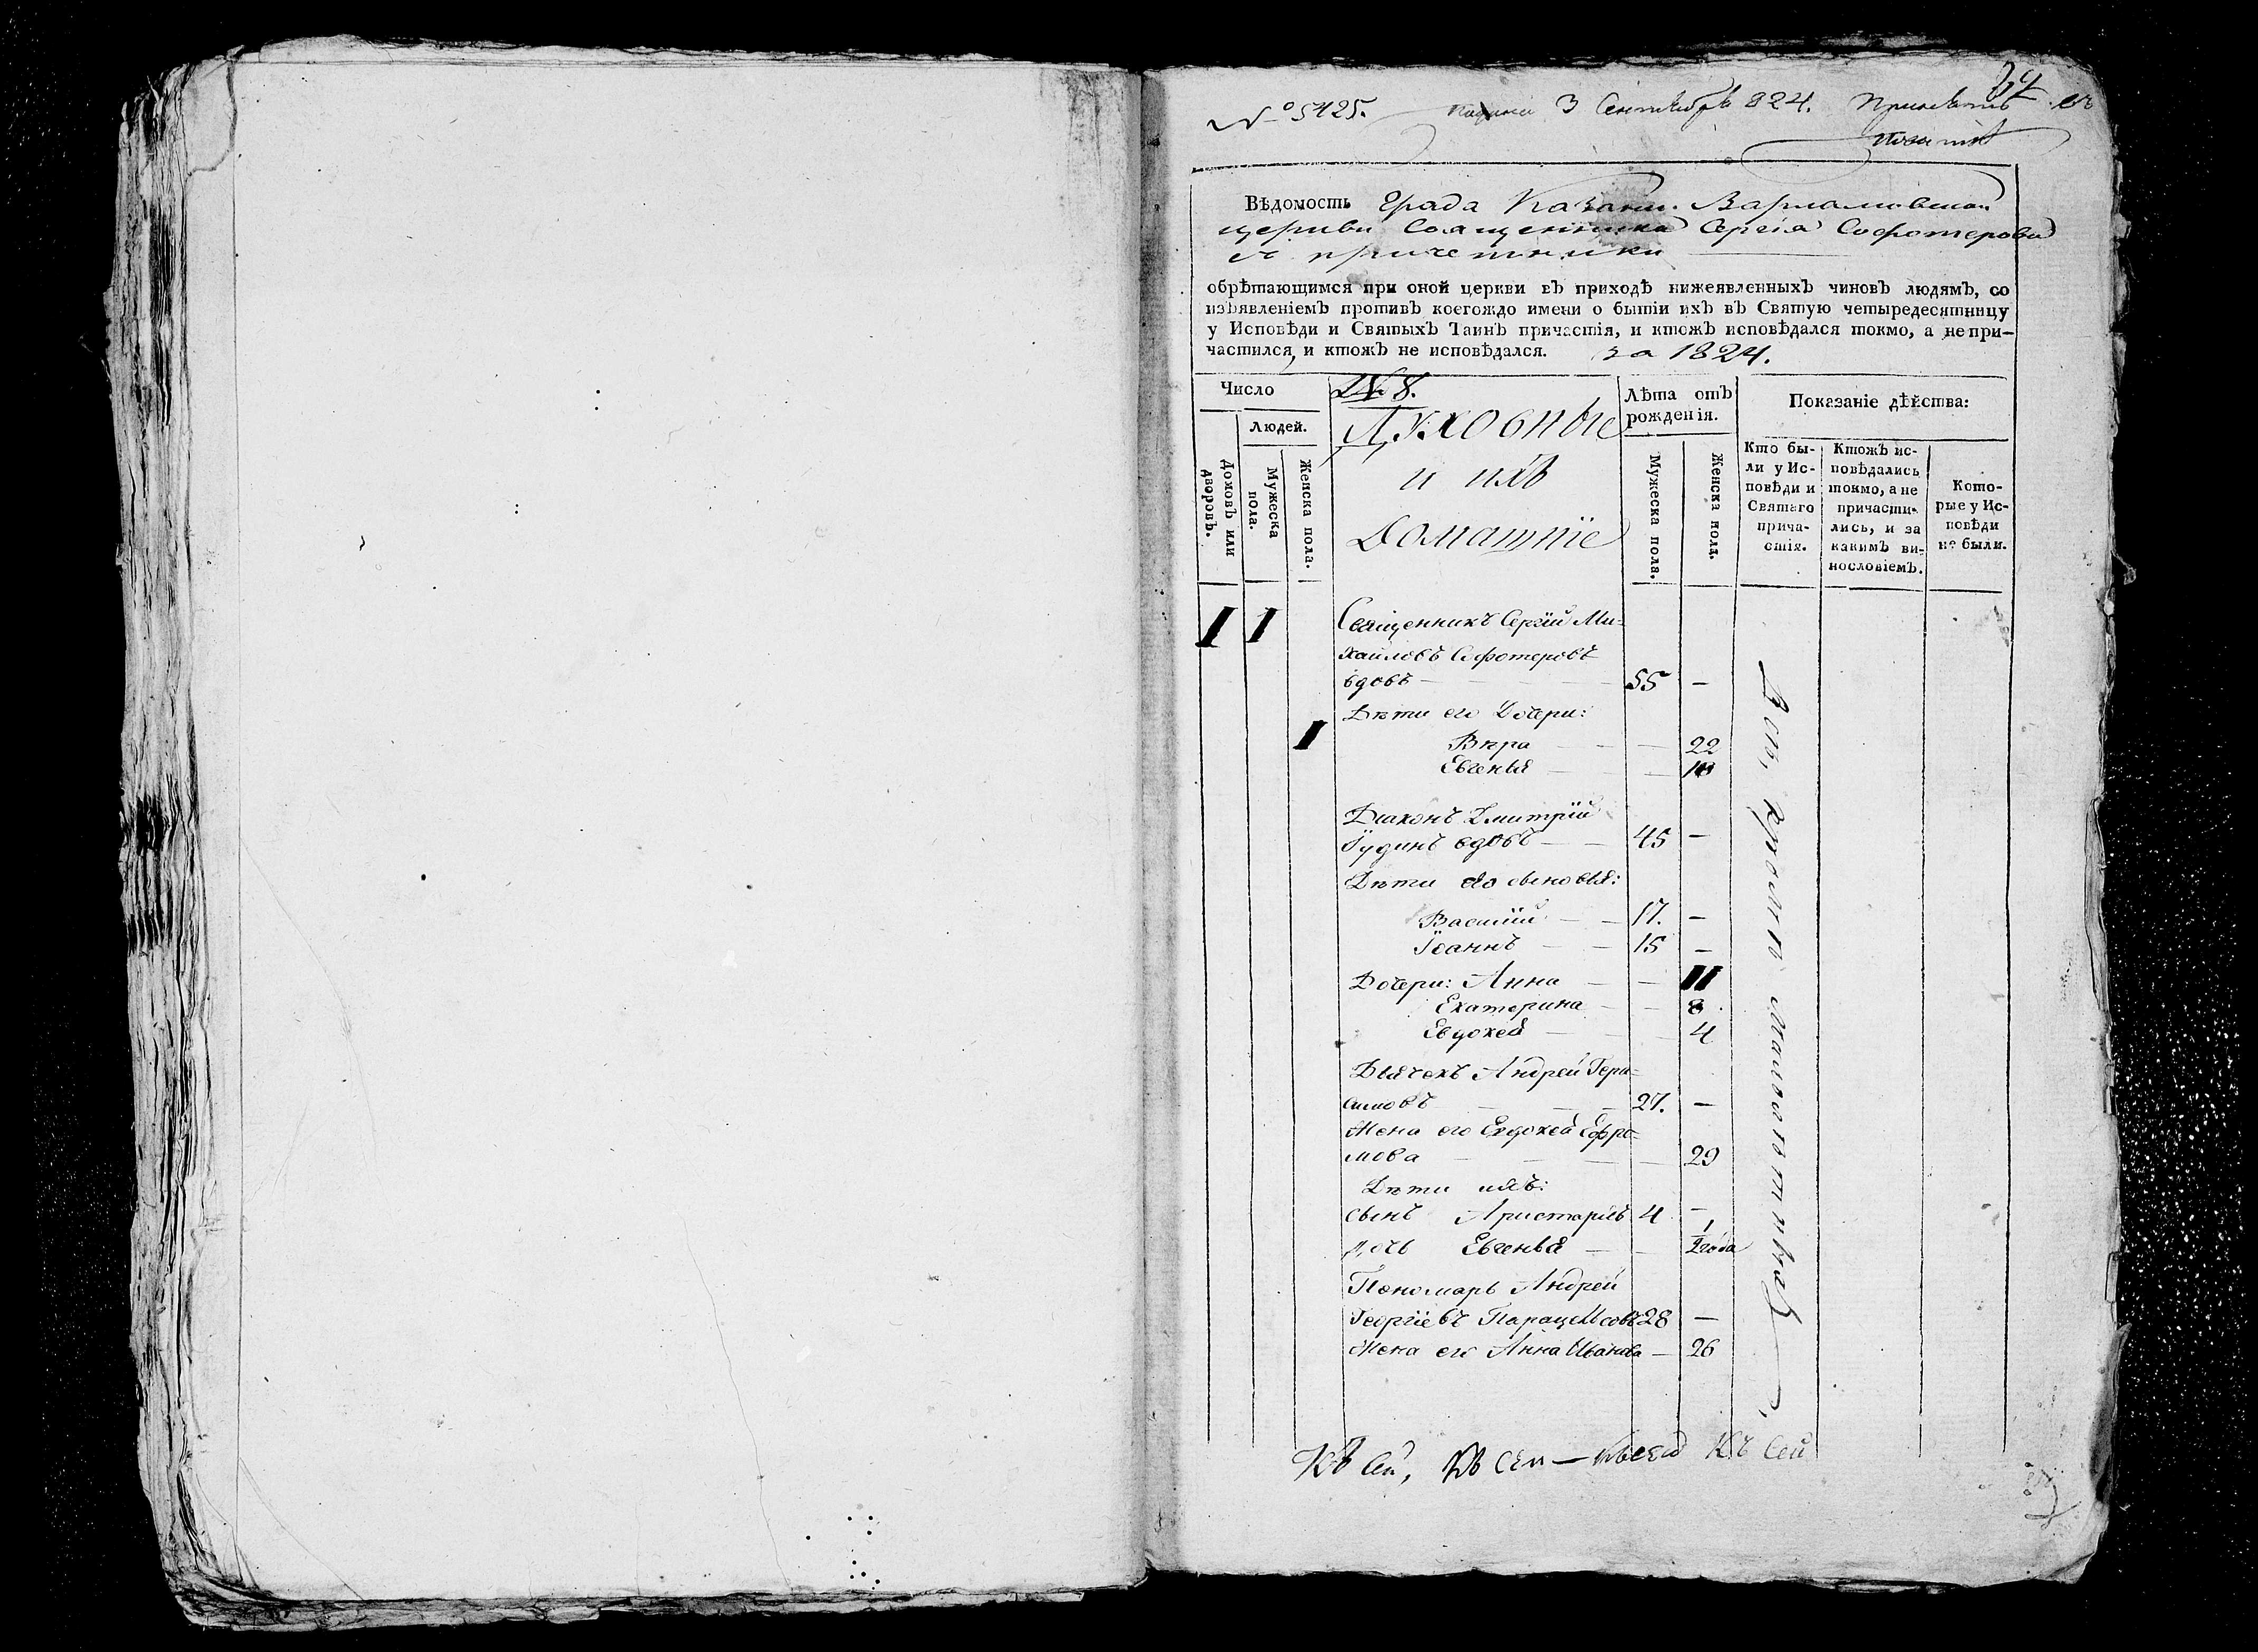 № 5425. 3 Сентября 824.
Вѣдомость Града Казани Варламовской
церкви Священника Сергія Софотерова
и причетники
обрѣтающимся при оной церкви въ приходѣ нижеявленныхъ чиновъ людямъ, со
изъявленіемъ противъ коегождо имени о бытіи ихъ въ Святую четыредесятницу
у Исповѣди и Святыхъ Таинъ причастія, и ктожъ исповѣдался токмо, а не при-
частился, и ктожъ не исповѣдался. за 1824.
Число
Людей.
Домовъ или дворовъ.
Мужеска пола.
Женска пола.
№ 8.
Духовные
и ихъ
Домашніе
Лѣта отъ
рожденія.
Мужеска пола.
Женска пола.
Показаніе дѣйства:
Кто бы-
ли у Ис-
повѣди и
Святаго
прича-
стія.
Ктожъ ис-
повѣдались
токмо, а не
причасти-
лись, и за
какимъ ви-
нословіемъ.
Кото-
рые у Ис-
повѣди
не были.
1 1 Священникъ Сергій Ми-
хайловъ Софотеровъ
вдовъ — 55 —
Дѣти его Дочери:
1 Вѣра — — 22
Евгенья — —
Діаконъ Дмитрій
Іудинъ вдовъ — 45 —
Дѣти его сыновья:
Василій — 17. —
Іоаннъ — 15 —
Дочери: Анна — — 11
Екатерина — — 8
Евдокея — — 4
Дьячекъ Андрей Гера-
симовъ — 27. —
Жена его Евдокея Ефре-
мова — — 29
Дѣти ихъ:
сынъ Аристархъ 4 —
дочь Евгенья — — 1/2 года
Пономарь Андрей
Георгіевъ Парацельсовъ 28 —
Жена его Анна Иванова — 26
Всѣ, кромѣ малолѣтныхъ
Къ сей, Къ сей — къ сей Къ сей